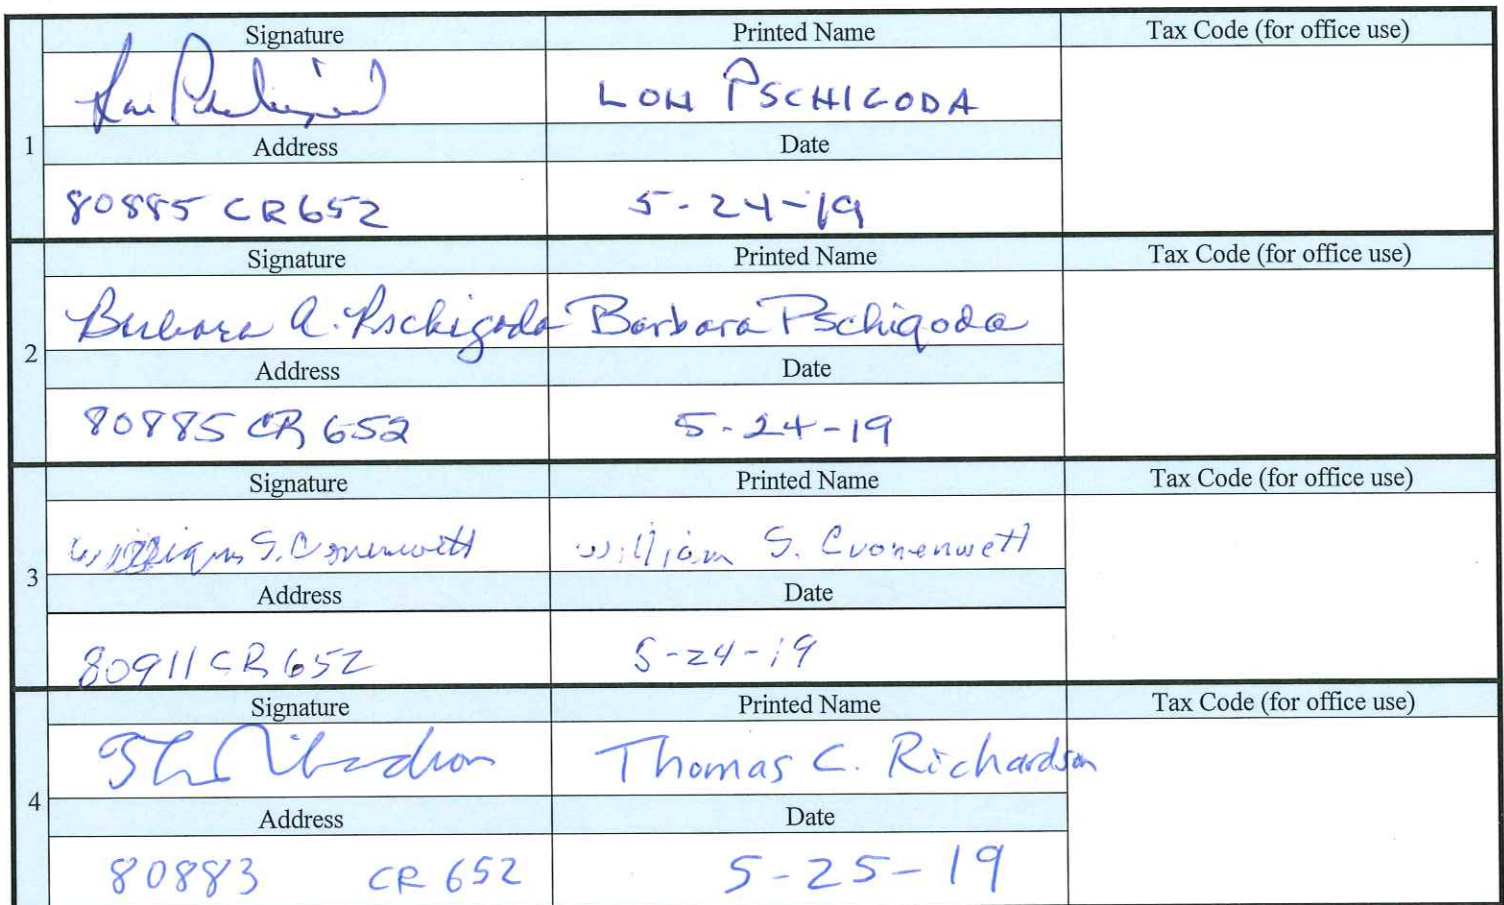 Signature Printed Name Tax Code (for office use)
LON PSCHIGODA
1
Address Date
80885 CR 652 5-24-19
Signature Printed Name Tax Code (for office use)
Barbara A. Pschigoda Barbara Pschigoda
2
Address Date
80885 CR 652 5-24-19
Signature Printed Name Tax Code (for office use)
William S. Cronenwett William S. Cronenwett
3
Address Date
80911 CR 652 5-24-19
Signature Printed Name Tax Code (for office use)
Thomas C. Richardson
4
Address Date
80883 CR 652 5-25-19